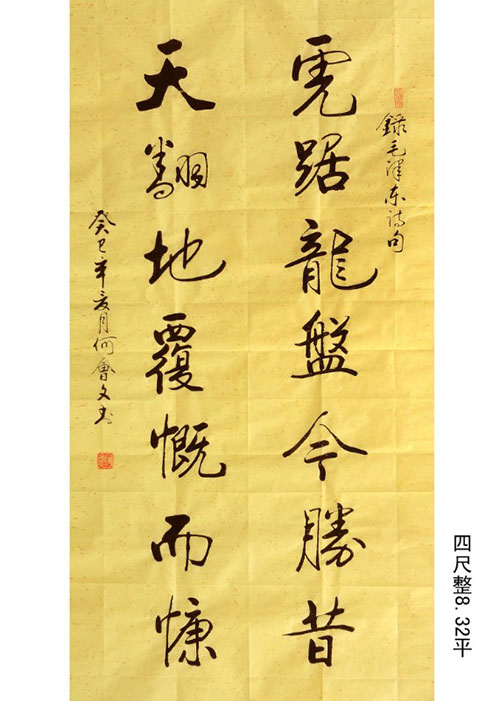 錄毛泽东诗句
虎踞龍盤今勝昔
天翻地覆慨而慷
癸巳年夏月何會文书
四尺整8.32平